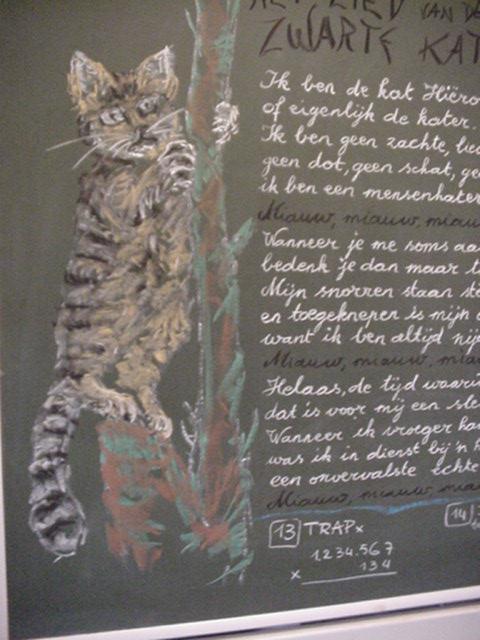 HET LIED VAN DE
ZWARTE KAT
Ik ben de kat Hiëro
of eigenlijk de kater.
Ik ben geen zachte, lie
geen dot, geen schat, ge
ik ben een mensenhater
Miauw, miauw, miau
Wanneer je me soms aa
bedenk je dan maar t
Mijn snorren staan st
en toegeknepen is mijn
want ik ben altijd nij
Miauw, miauw, mia
Helaas, de tijd waari
dat is voor mij een sle
Wanneer ik vroeger ka
was ik in dienst bij 'n h
een onvervalste echte
Miauw, miauw, mia
13 TRAP x
14
1.234.567
134
x